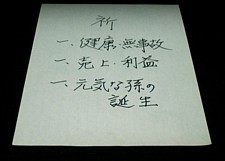 祈
一、健康・無事故
一、売上・利益
一、元気な孫の
誕生